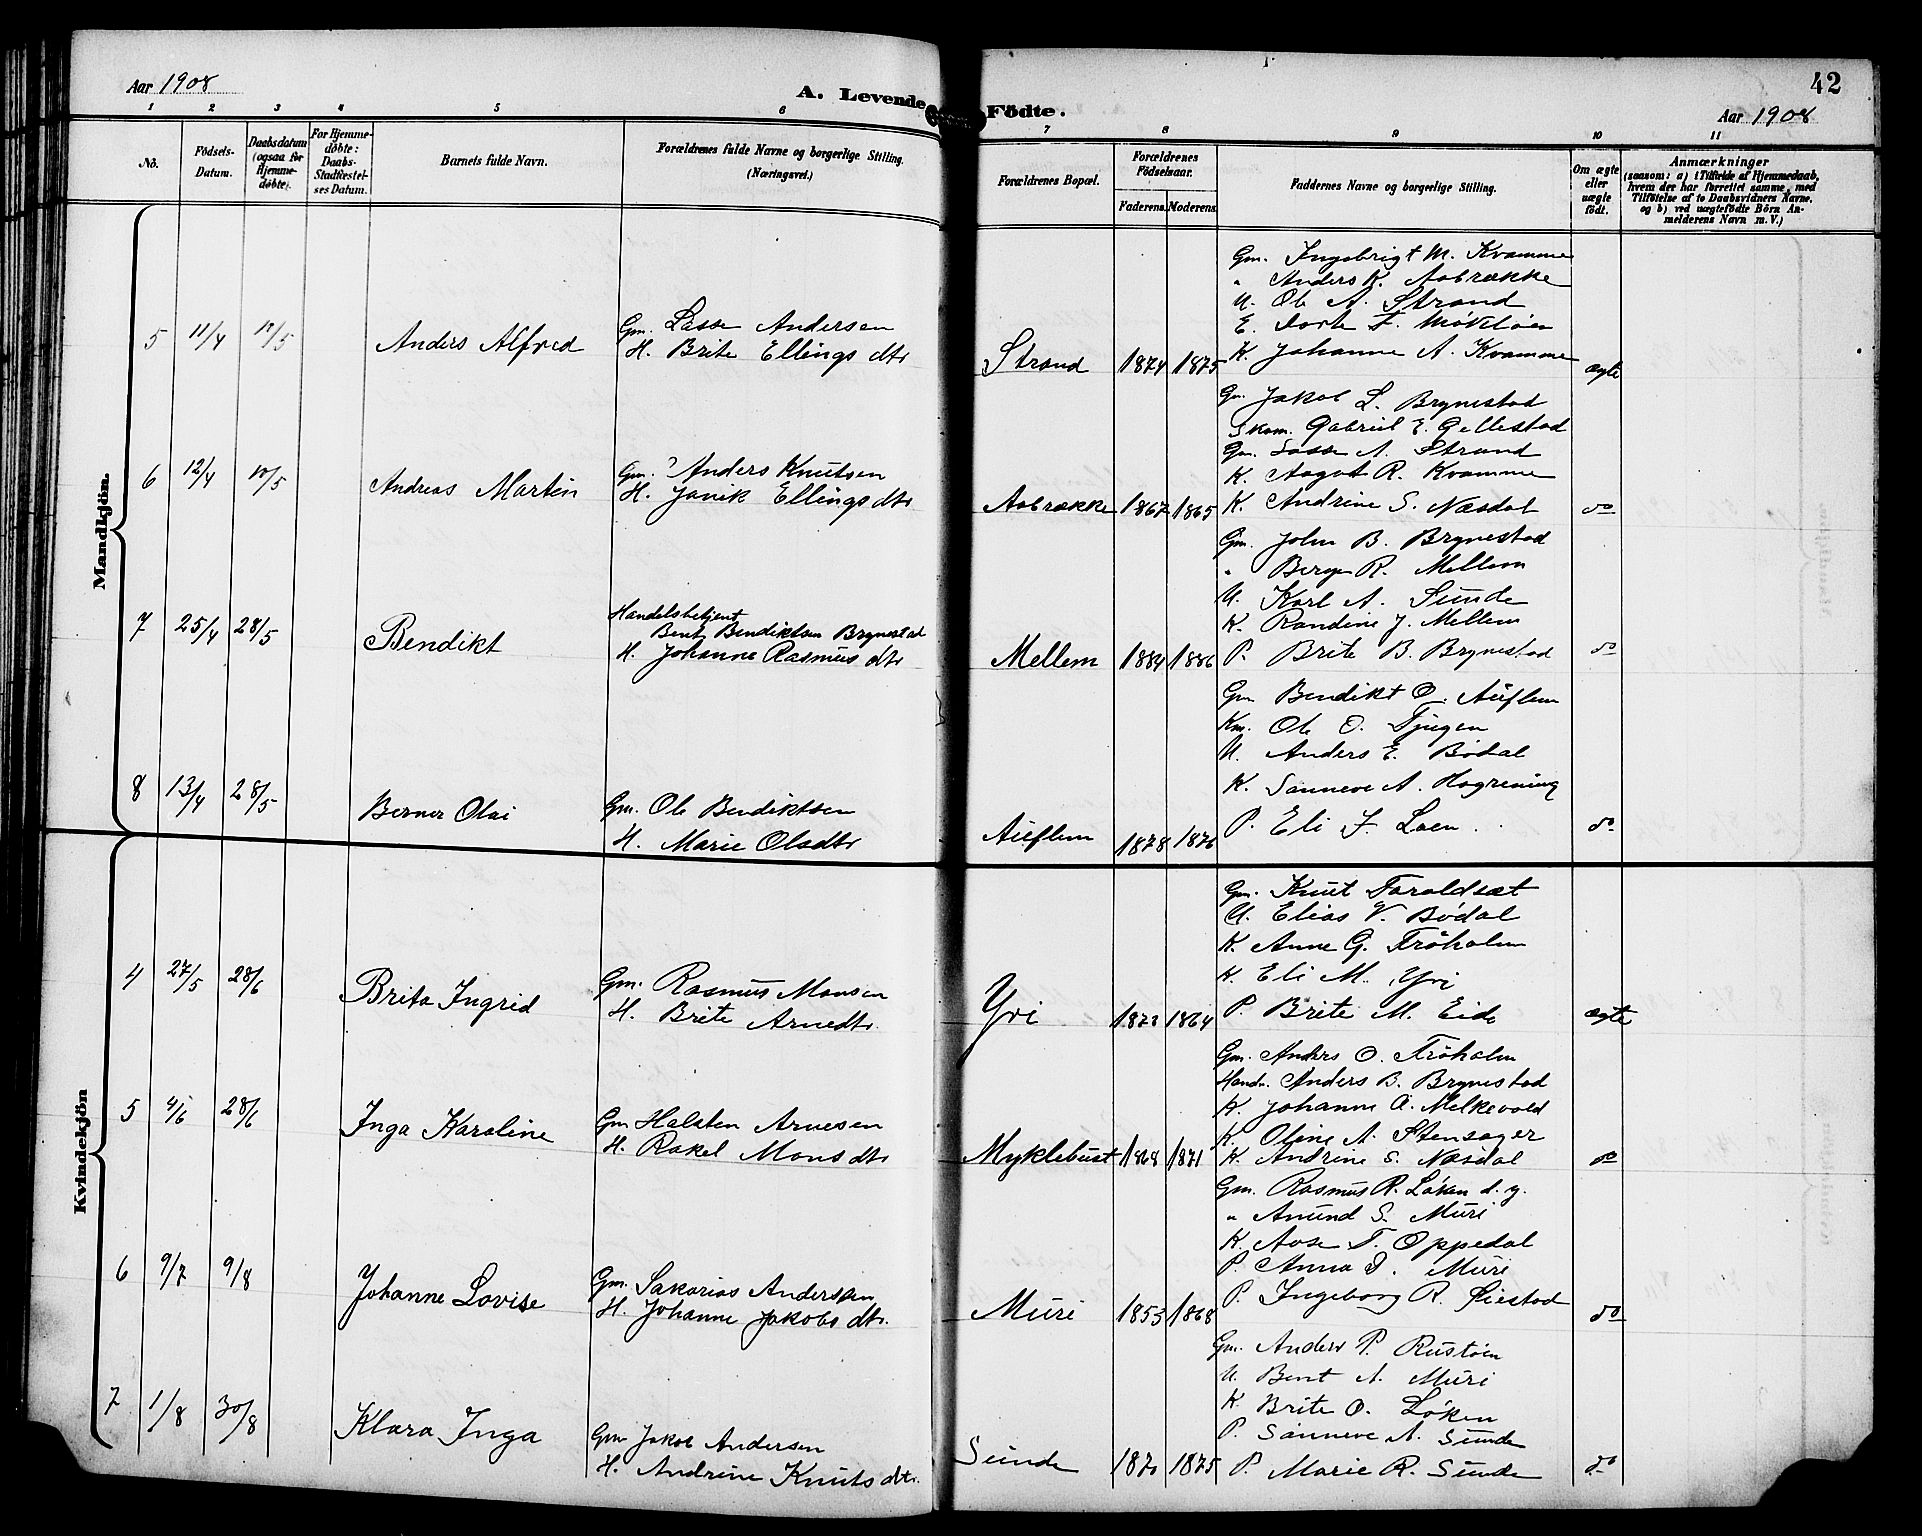 Aar 1908
A. Levende Födte.
42
Aar 1908
1 2 3 4 5 6 7 8 9 10 11
No.
Födsels-Datum.
Daabsdatum (ogsaa for Hjemme-döbte).
For Hjemme-döbte: Daabs-Stadfæstel-ses Datum.
Barnets fulde Navn.
Forældrenes fulde Navne og borgerlige Stilling. (Næringsvei.)
Forældrenes Bopæl.
Forældrenes Födselsaar.
Faderens. Moderens.
Faddernes Navne og borgerlige Stilling.
Om ægte eller uægte födt.
Anmærkninger
(saasom: a) i Tilfælde af Hjemmedaab, hvem der har forrettet samme, med Tilföielse af to Daabsvidners Navne, og b) ved uægtefödte Börn An-melderens Navn m. V.)
Mandkjön.
5 11/4 17/5 Anders Alfred
Gm. Lasse Andersen
H. Brite Ellings dtr
Strand 1874 1875
Gm. Ingebrigt M. Kvamme
" Anders K. Aabrække
U. Ole A. Strand
E. Dorte F. Möklöen
K. Johanne A. Kvamme
ægte
6 12/4 10/5 Andreas Martin
Gm. ? Anders Knutsen
H. Janik Ellings dtr
Aabrække 1867 1865
Gm. Jakob L. Brynestad
Skom. Gabriel E. Gellestad
Gm. Lasse A. Strand
K. Aagot R. Kvamme
K. Andrine S. Næsdal
do
7 25/4 28/5 Bendikt
Handelsbetjent
Bent Bendiktsen Brynestad
H. Johanne Rasmus dtr
Mellem 1884 1886
Gm. John B. Brynestad
" Berge R. Mellem
U. Karl A. Sunde
K. Randine J. Mellem
P. Brite B. Brynestad
do
8 13/4 28/5 Berner Olai
Gm. Ole Bendiktsen
H. Marie Olsdtr
Auflem 1878 1876
Gm Bendikt O. Auflem
Km. Ole O. Tjugen
U. Anders E. Bödal
K. Sanneve A. Hogrening
P. Eli J. Loen
do
Kvindekjön
4 27/5 28/6 Brita Ingrid
Gm. Rasmus Monsen
H. Brite Arnedtr.
Yri 1864
Gm. Knut Taraldset
U. Elias V. Bödal
K. Anne G. Tröholm
K. Eli M. Yri
P. Brite M. Eide
ægte
5 4/6 28/6 Inga Karoline
Gm Halsten Arnesen
H. Rakel Mons dtr
Myklebust 1868 1871
Gm. Anders O. Tröholm
Handv. Anders B. Brynestad
K. Johanne A. Melkevold
K. Oline A. Stensager
K. Andrine S. Næsdal
do
6 9/7 9/8 Johanne Lovise
Gm. Sakarias Andersen
H. Johanne Jakobs dtr.
Muri 1853 1868
Gm. Rasmus R. Löken d. y.
" Anund S. Muri
K. Aase T. Oppedal
P. Anna D. Muri
P. Ingeborg R. Seiestad
do
7 1/8 30/8 Klara Inga
Gm Jakob Andersen
H. Andrine Knuts dtr.
Sunde 1870 1875
Gm. Anders P. Rustöen
U. Bent A. Muri
K Brite O. Löken
P. Sanneve A. Sunde
P. Marie R. Sunde
do